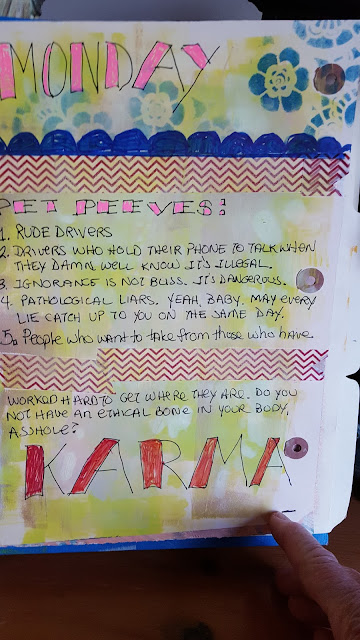 MONDAY
PET PEEVES:
1. RUDE DRIVERS
2. DRIVERS WHO HOLD THEIR PHONE TO TALK WHEN
THEY DAMN WELL KNOW IT'S ILLEGAL.
3. IGNORANCE IS NOT BLISS. IT'S DANGEROUS.
4. PATHOLOGICAL LIARS. YEAH, BABY. MAY EVERY
LIE CATCH UP TO YOU ON THE SAME DAY.
5. PEOPLE WHO WANT TO TAKE FROM THOSE WHO HAVE
WORKED HARD TO GET WHERE THEY ARE. DO YOU
NOT HAVE AN ETHICAL BONE IN YOUR BODY,
ASSHOLE?
KARMA